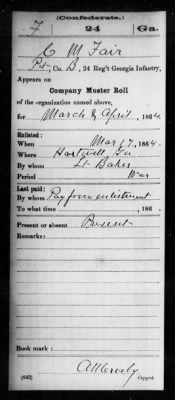 (Confederate.)
F 24 Ga.
C M Fair
Pvt, Co. B, 24 Reg't Georgia Infantry.
Appears on
Company Muster Roll
of the organization named above,
for March & April, 1864.
Enlisted:
When Mar 7, 1864.
Where Hartwell Ga
By whom Lt Baker
Period War
Last paid:
By whom Pay from enlistment
To what time , 186 .
Present or absent Present
Remarks:
Book mark:
(642) Copyist.